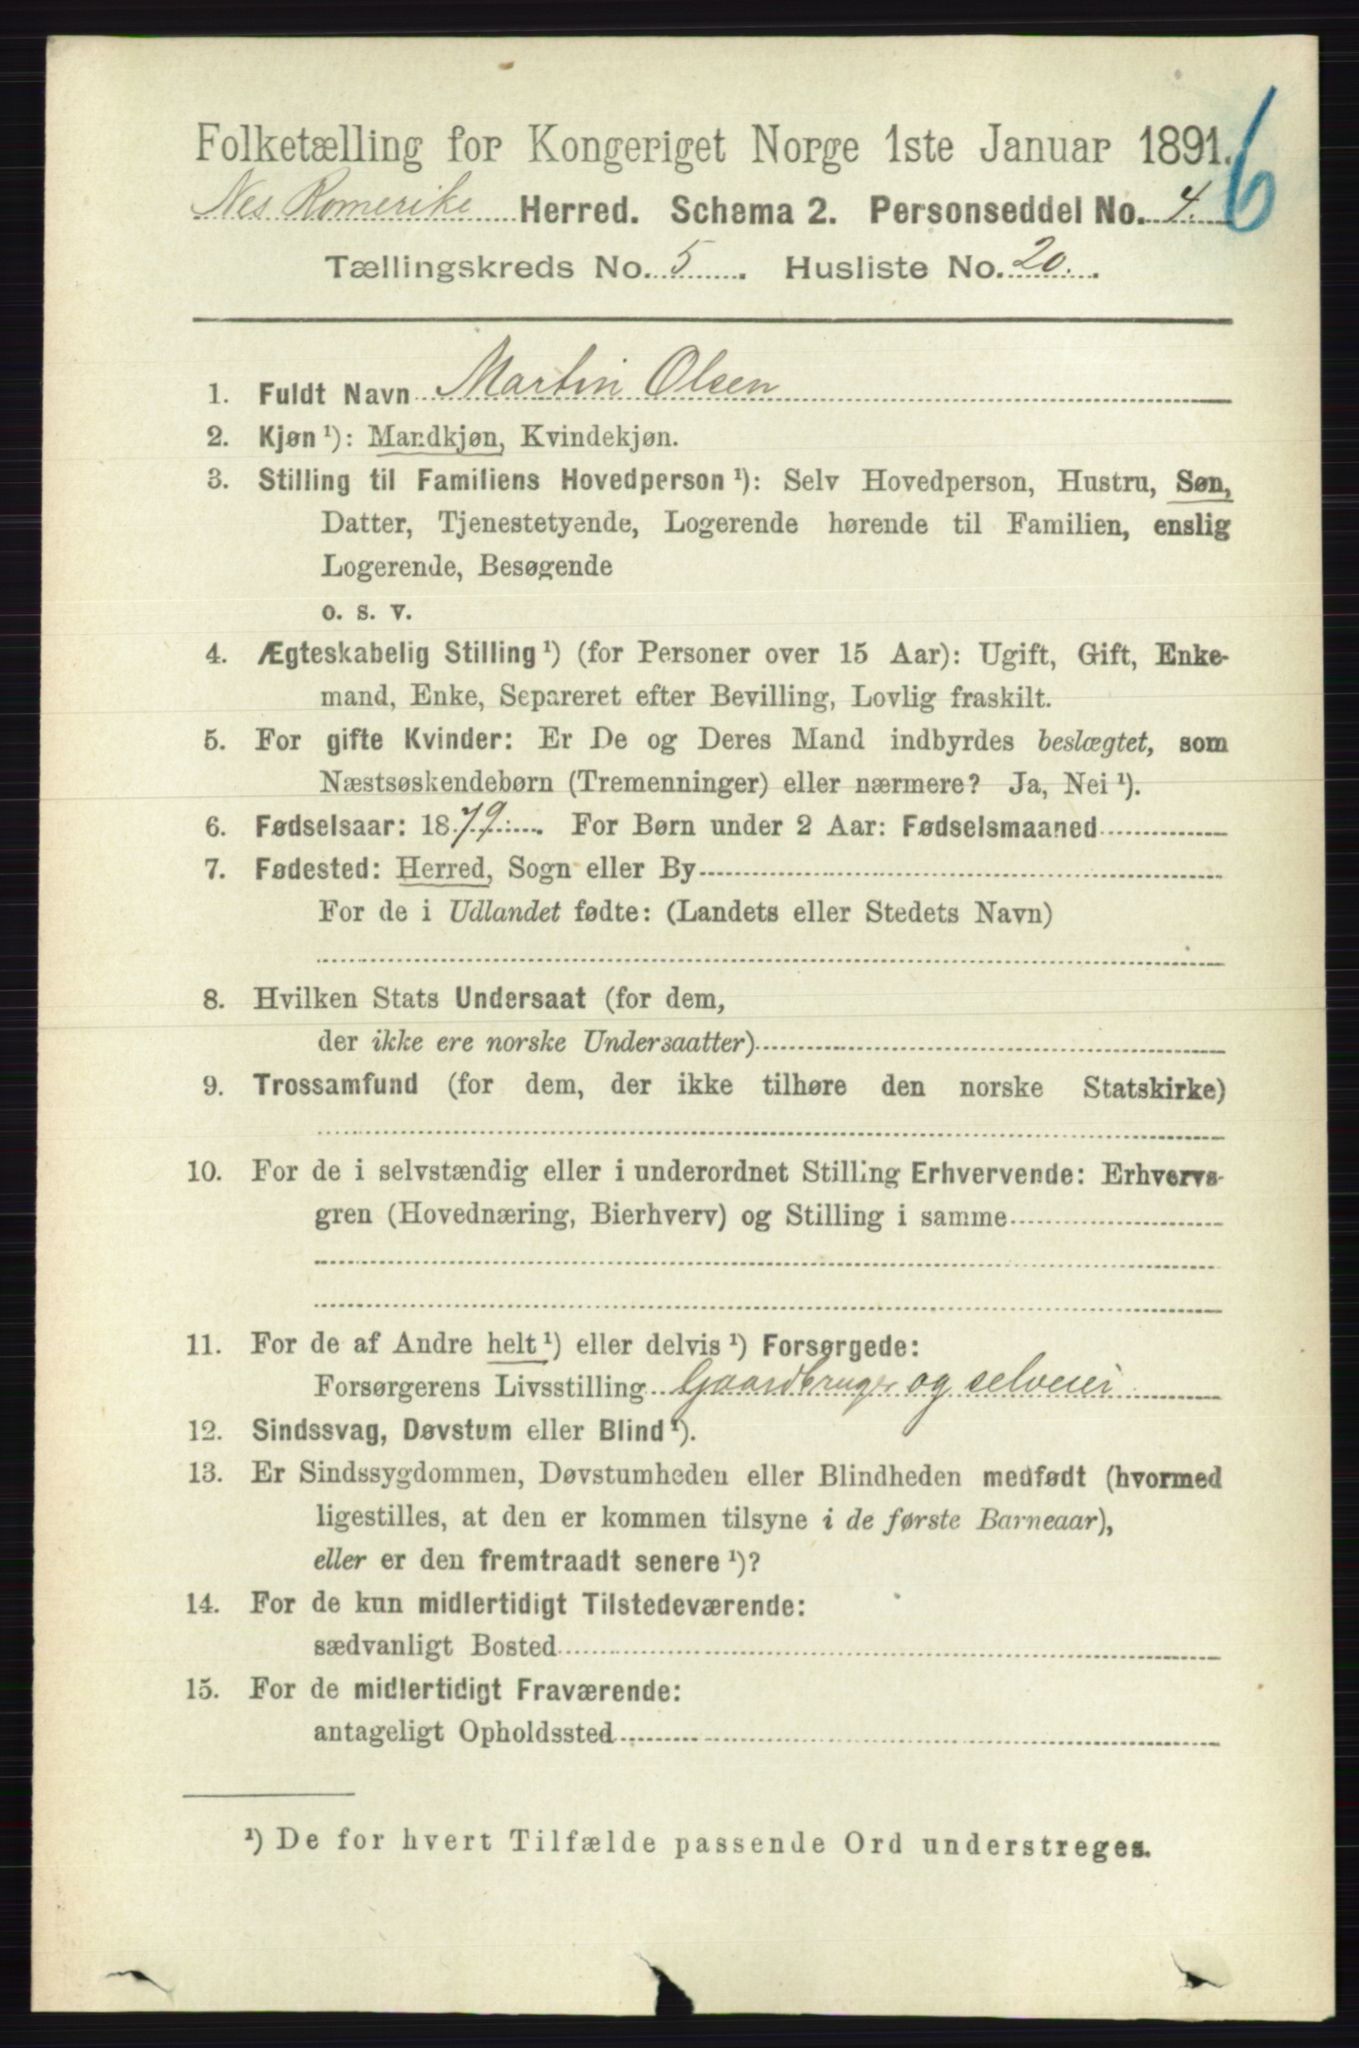 Folketælling for Kongeriget Norge 1ste Januar 1891.
6
Nes Romerike Herred. Schema 2. Personseddel No. 4.
Tællingskreds No. 5. Husliste No. 20.
1. Fuldt Navn Martin Olsen
2. Kjøn ¹): Mandkjøn, Kvindekjøn.
3. Stilling til Familiens Hovedperson ¹): Selv Hovedperson, Hustru, Søn,
Datter, Tjenestetyende, Logerende hørende til Familien, enslig
Logerende, Besøgende
o. s. v.
4. Ægteskabelig Stilling ¹) (for Personer over 15 Aar): Ugift, Gift, Enke-
mand, Enke, Separeret efter Bevilling, Lovlig fraskilt.
5. For gifte Kvinder: Er De og Deres Mand indbyrdes beslægtet, som
Næstsøskendebørn (Tremenninger) eller nærmere? Ja, Nei ¹).
6. Fødselsaar: 1879. For Børn under 2 Aar: Fødselsmaaned
7. Fødested: Herred, Sogn eller By
For de i Udlandet fødte: (Landets eller Stedets Navn)
8. Hvilken Stats Undersaat (for dem,
der ikke ere norske Undersaatter)
9. Trossamfund (for dem, der ikke tilhøre den norske Statskirke)
10. For de i selvstændig eller i underordnet Stilling Erhvervende: Erhvervs-
gren (Hovednæring, Bierhverv) og Stilling i samme
11. For de af Andre helt ¹) eller delvis ¹) Forsørgede:
Forsørgerens Livsstilling Gaardbruger og selveier
12. Sindssvag, Døvstum eller Blind ¹).
13. Er Sindssygdommen, Døvstumheden eller Blindheden medfødt (hvormed
ligestilles, at den er kommen tilsyne i de første Barneaar),
eller er den fremtraadt senere ¹)?
14. For de kun midlertidigt Tilstedeværende:
sædvanligt Bosted
15. For de midlertidigt Fraværende:
antageligt Opholdssted
¹) De for hvert Tilfælde passende Ord understreges.